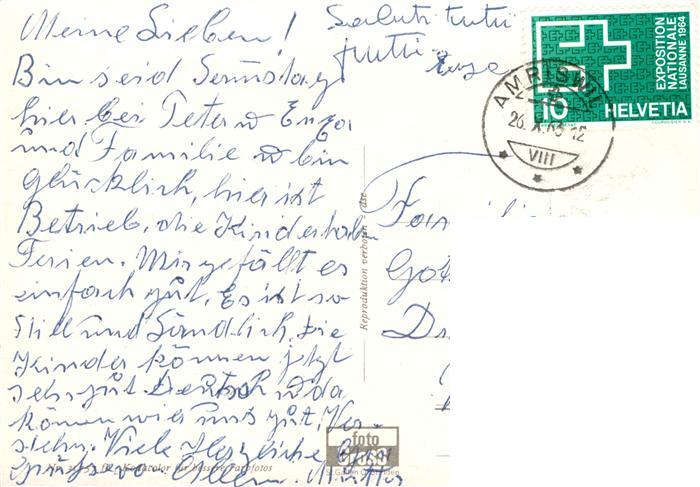 Meine Lieben!
Bin seid Samstag
hier bei Peter u Enza
und Familie u bin
Glücklich, hier ist
Betrieb, die Kinder haben
Ferien. Mir gefällt es
einfach gut. Es ist so
Still und Ländlich. Die
Kinder können jetzt
sehr gut Deutsch u da
können wir uns gut Ver-
stehn. Viele Herzliche
Grüsse von Allen. Mutter
Saluti tutti
tutti
Enza
EXPOSITION
NATIONALE
LAUSANNE 1964
10 HELVETIA
AMRISWIL
26.X.63-12
VIII
Reproduktion verboten
foto
gross
St. Gallen
Kodacolor für bessere Farbfotos